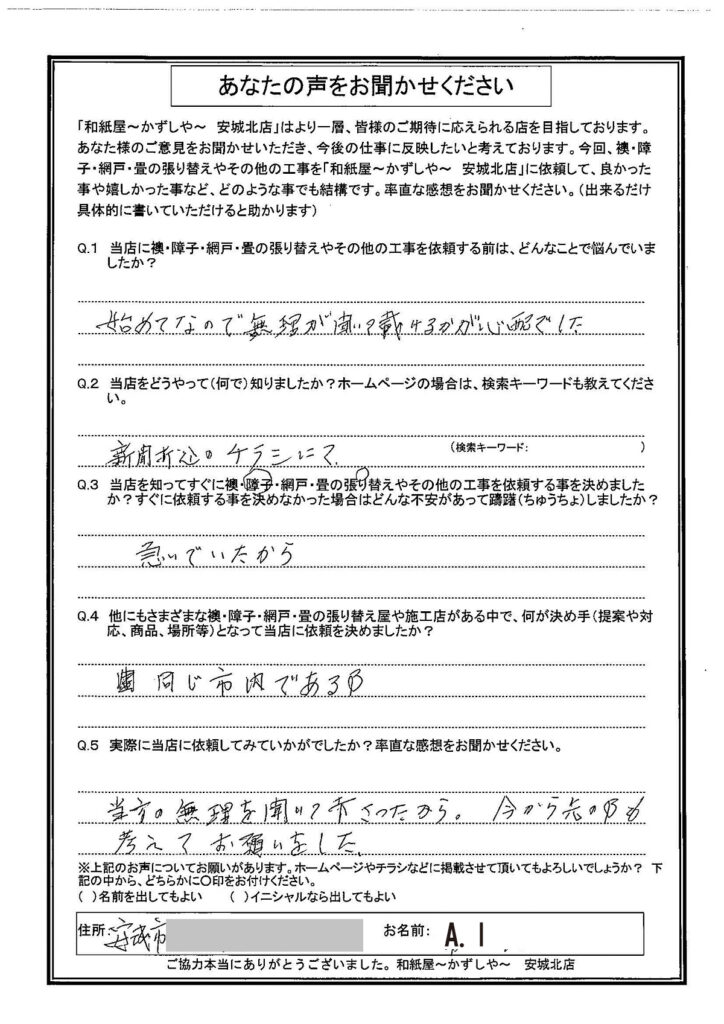 あなたの声をお聞かせください
「和紙屋～かずしや～　安城北店」はより一層、皆様のご期待に応えられる店を目指しております。
あなた様のご意見をお聞かせいただき、今後の仕事に反映したいと考えております。今回、襖・障
子・網戸・畳の張り替えやその他の工事を「和紙屋～かずしや～　安城北店」に依頼して、良かった
事や嬉しかった事など、どのような事でも結構です。率直な感想をお聞かせください。（出来るだけ
具体的に書いていただけると助かります）
Q.1　当店に襖・障子・網戸・畳の張り替えやその他の工事を依頼する前は、どんなことで悩んでいま
したか？
始めてなので無理が聞いて載けるかが心配でした
Q.2　当店をどうやって（何で）知りましたか？ホームページの場合は、検索キーワードも教えてくださ
い。
新聞折込のチラシにて
（検索キーワード:　　　）
Q.3　当店を知ってすぐに襖・障子・網戸・畳の張り替えやその他の工事を依頼する事を決めました
か？すぐに依頼する事を決めなかった場合はどんな不安があって躊躇（ちゅうちょ）しましたか？
急いでいたから
Q.4　他にもさまざまな襖・障子・網戸・畳の張り替え屋や施工店がある中で、何が決め手（提案や対
応、商品、場所等）となって当店に依頼を決めましたか？
同じ市内である
Q.5　実際に当店に依頼してみていかがでしたか？率直な感想をお聞かせください。
当方の無理を聞いて下さったから。今から先の事も
考えてお願いをした。
※上記のお声についてお願いがあります。ホームページやチラシなどに掲載させて頂いてもよろしいでしょうか？　下
記の中から、どちらかに〇印をお付けください。
（　）名前を出してもよい　　（　）イニシャルなら出してもよい
住所：安城市
お名前：　A. I
ご協力本当にありがとうございました。和紙屋～かずしや～　安城北店